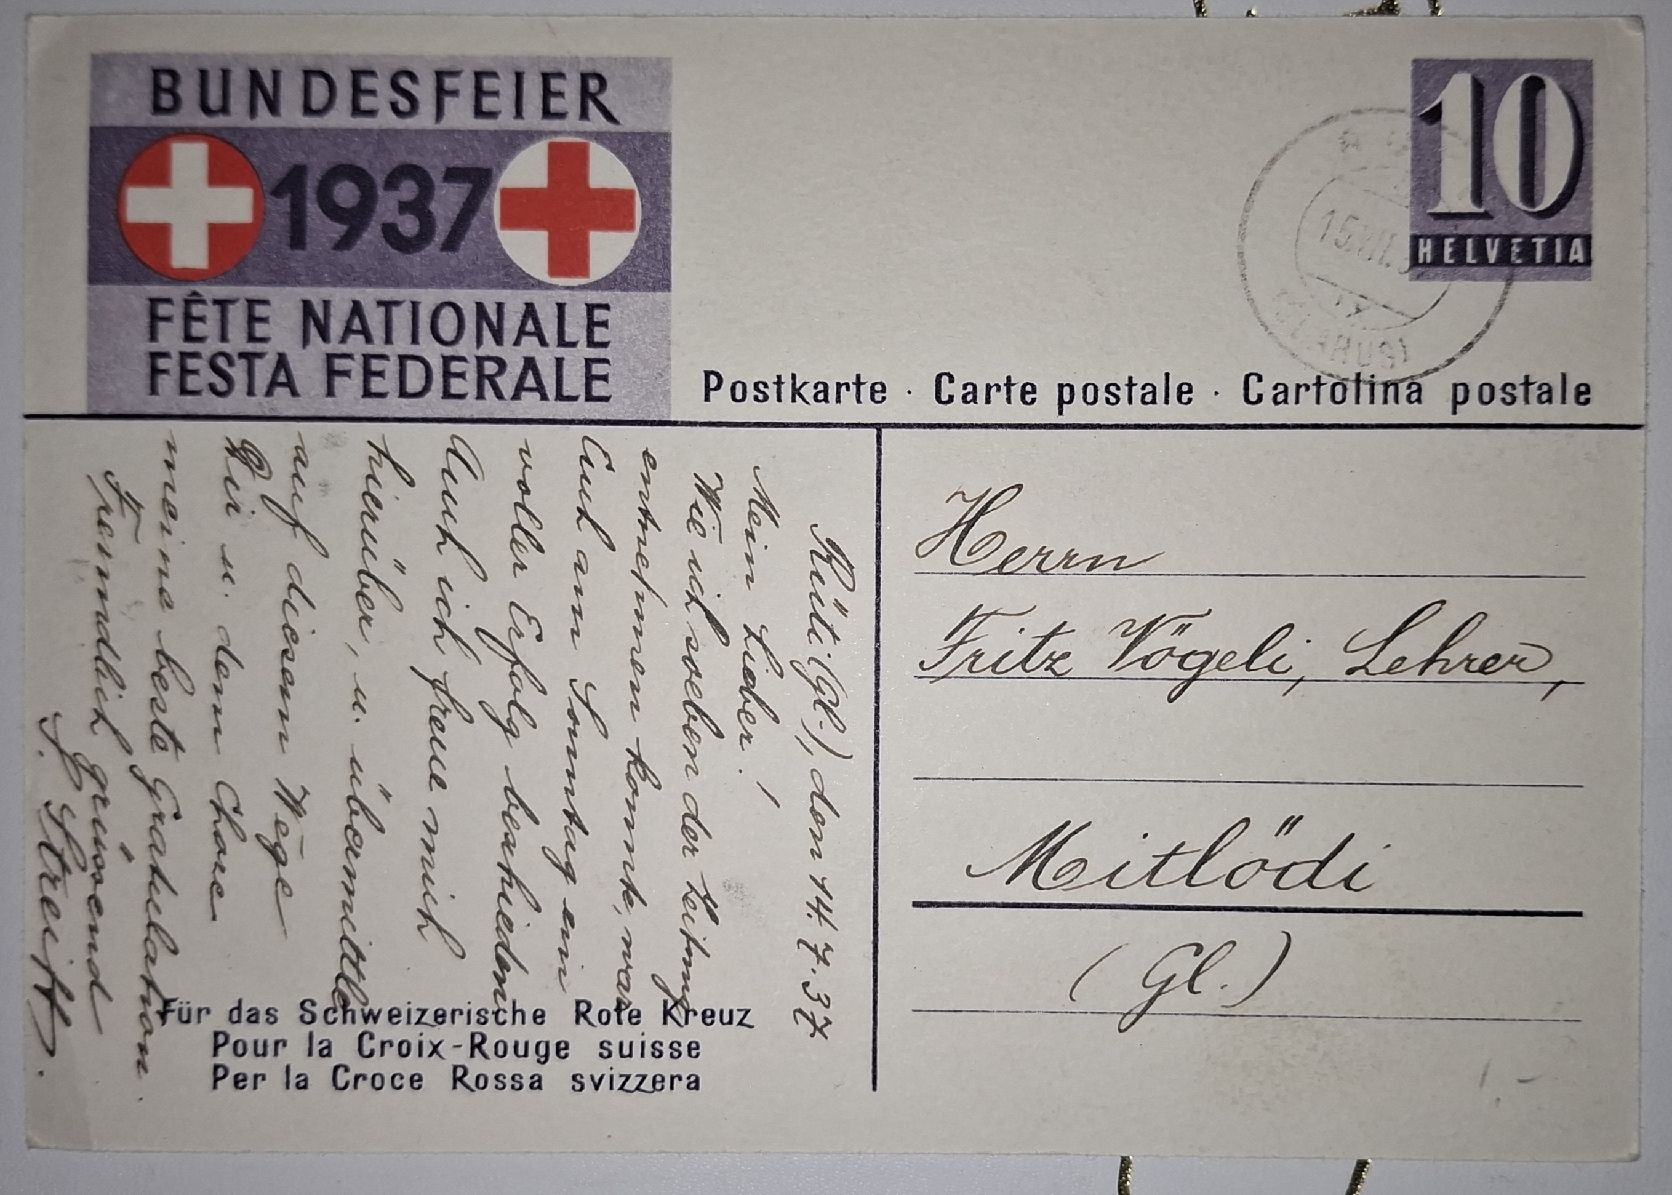 BUNDESFEIER
1937
FÊTE NATIONALE
FESTA FEDERALE
10
HELVETIA
15.VII.3
(GLARUS)
Postkarte · Carte postale · Cartolina postale
Rüti (Gl.), den 14.7.37
Mein Lieber!
Wie ich soeben der Zeitung
entnehmen konnte, war
Euch am Sonntag ein
voller Erfolg beschieden
Auch ich freue mich
hierüber, u. übermittle
auf diesem Wege
Dir u. dem Chore
meine beste Gratulation.
Freundlich grüssend
F. Streiff.
Für das Schweizerische Rote Kreuz
Pour la Croix-Rouge suisse
Per la Croce Rossa svizzera
Herrn
Fritz Vögeli, Lehrer,
Mitlödi
(Gl.)